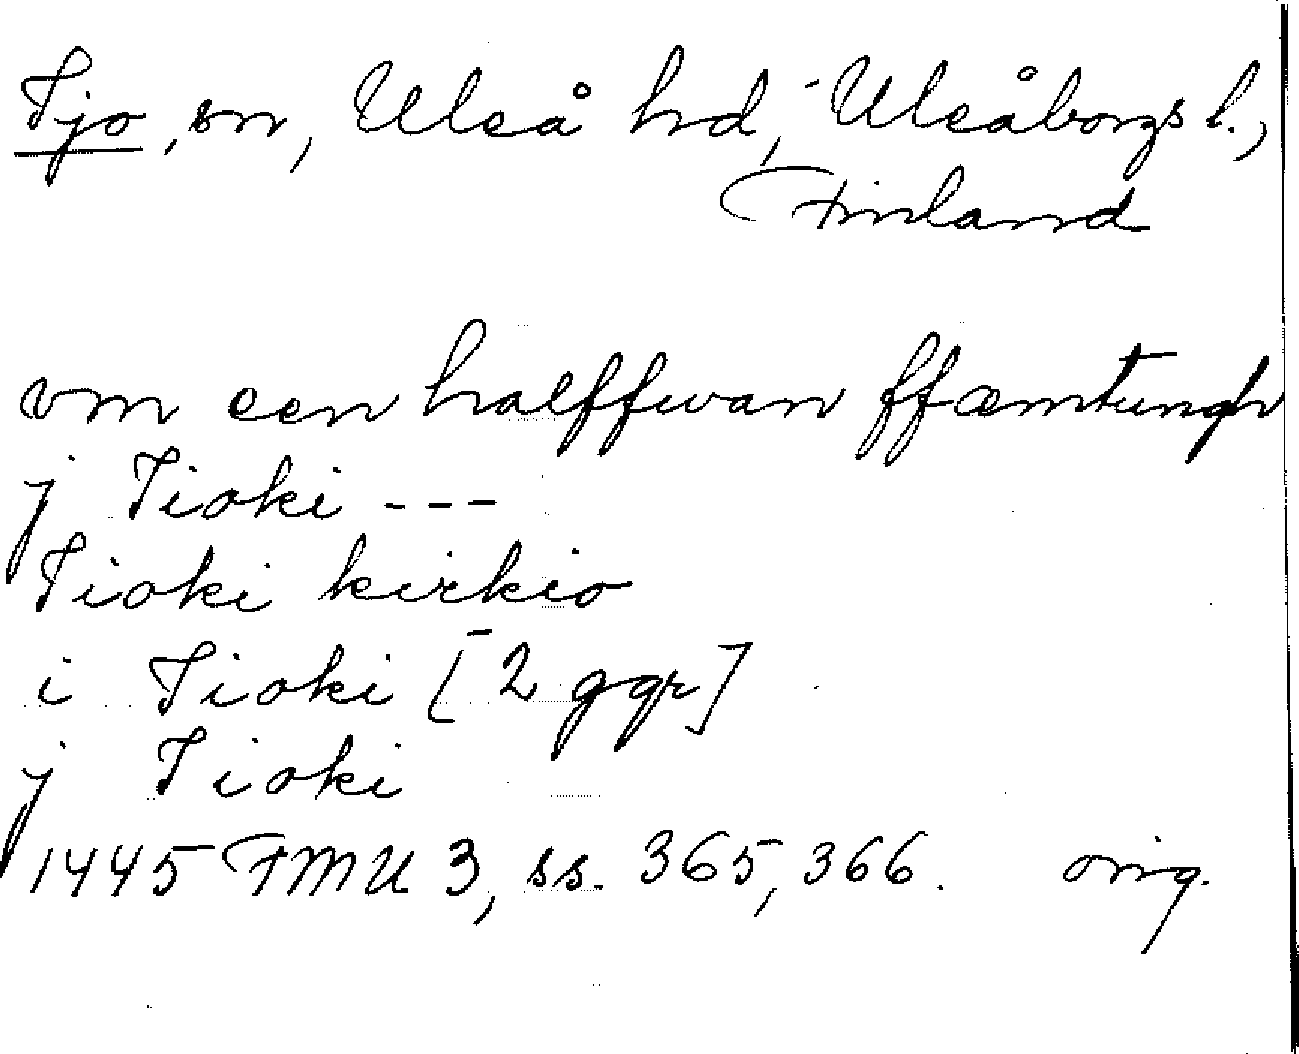 Tjo, sn, Uleå hd, Uleåborgs l.,
Finland
vm een halffwan ffæmtungh
j Tioki ---
Tioki kirkio
i Tioki [2 ggr]
j Tioki
1445 FMU 3, ss. 365, 366. orig.